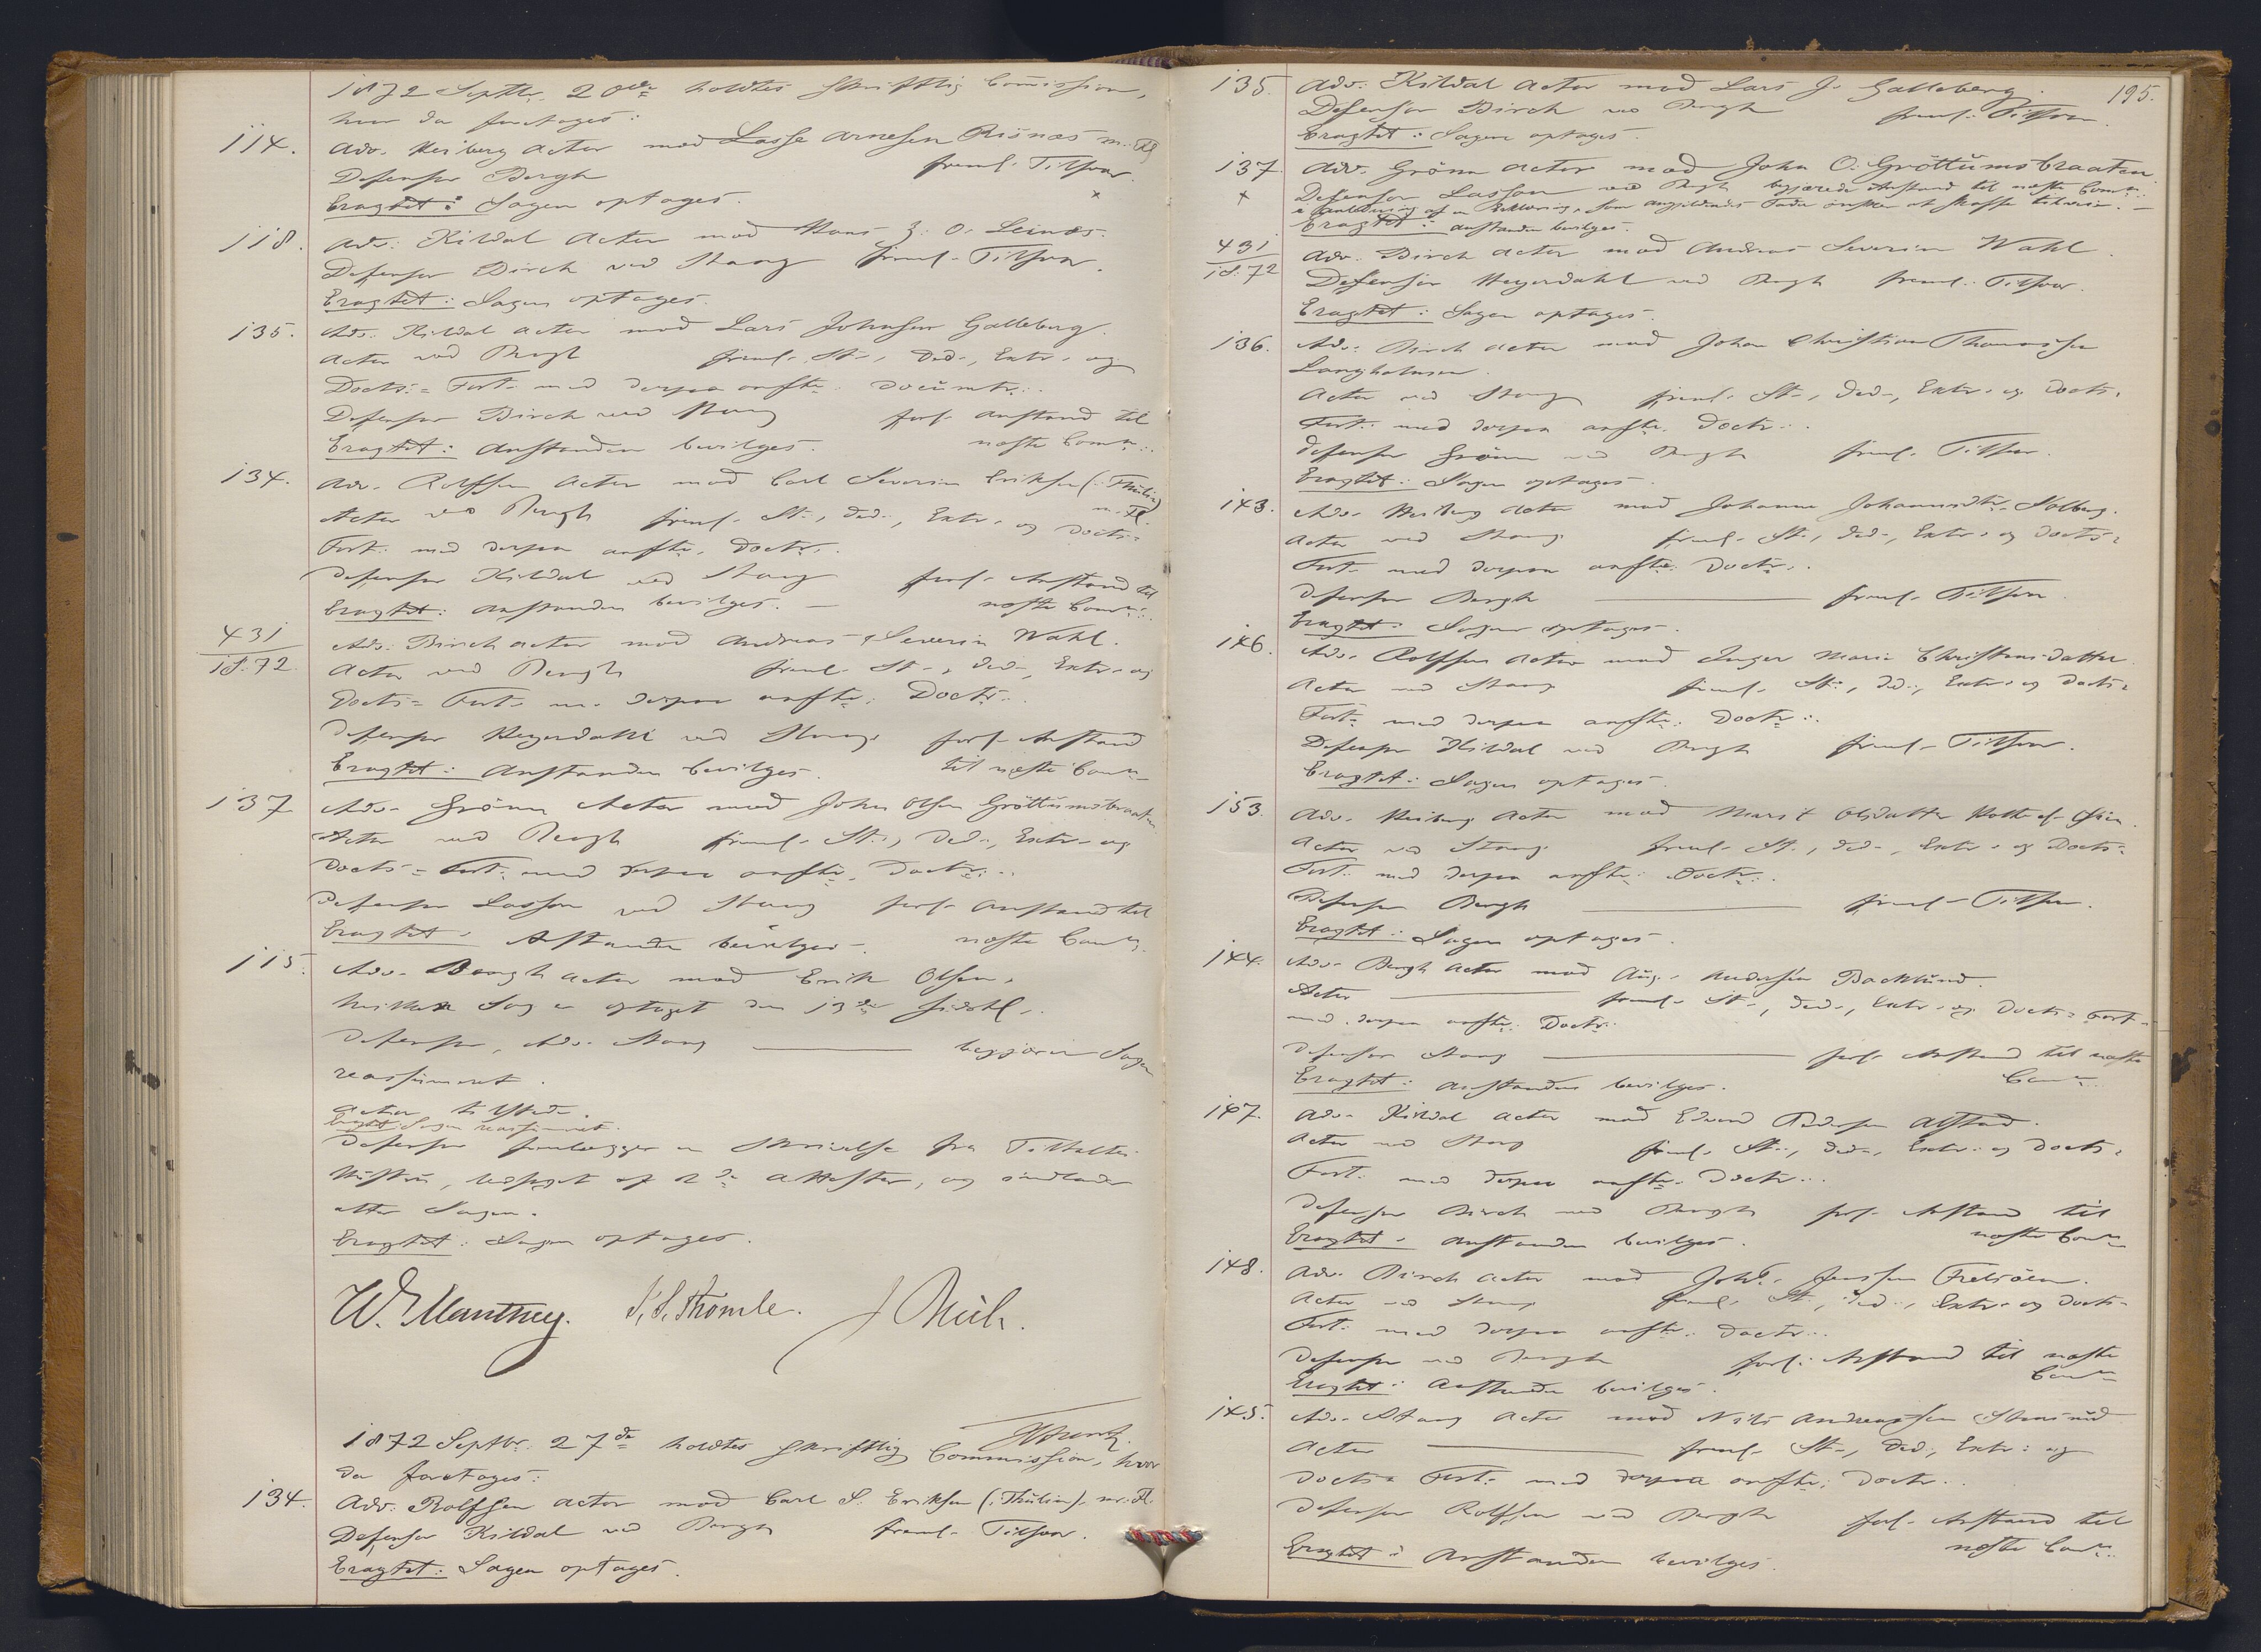 1872 Septbr. 20de holdtes skriftlig Commission,
hvor da foretoges:
114. Adv. Heiberg Actor mod Lasse Arnesen Risnæs m. Fl.
Defensor Bergh freml. Tilsvar.
Eragtet: Sagen optages.
118. Adv. Kildal Actor mod Hans J. O. Leinæs.
Defensor Birch ved Stang freml. Tilsvar.
Eragtet: Sagen optages.
135. Adv. Kildal Actor mod Lars Johnsen Galleberg.
Actor ved Bergh freml. St., Ded., Extr. og
Docts. Fort. med derpaa anførte Documtr.
Defensor Birch ved Stang forl. Anstand til
Eragtet: Anstanden bevilges. næste Comn.
134. Adv. Rolfsen Actor mod Carl Severin Eriksen (: Thulin)
m. Fl.
Actor ved Bergh freml. St., Ded., Extr. og Docts.
Fort. med derpaa anførte Doctr.
Defensor Kildal ved Stang forl. Anstand til
Eragtet: Anstanden bevilges. — næste Comn.
431/1872 Adv. Birch Actor mod Andreas Severin Wahl.
Actor ved Bergh freml. St., Ded., Extr. og
Docts. Fort. m. derpaa anførte Doctr.
Defensor Heyerdahl ved Stang forl. Anstand
Eragtet: Anstanden bevilges. til næste Comn.
137 Adv. Grönn Actor mod John Olsen Gröttumsbraaten
Actor ved Bergh freml. St., Ded., Extr. og
Docts. Fort. med derpaa anførte Doctr.
Defensor Lasson ved Stang forl. Anstand til
Eragtet: Anstanden bevilges. næste Comn.
115. Adv. Bergh Actor mod Erik Olsen,
hvilken Sag er optaget den 13de sidstl.
Defensor, Adv. Stang — begjærer Sagen
reassumeret.
Actor tilstede.
Eragtet: Sagen reassumeret.
Defensor fremlægger en Skrivelse fra
og indlader
atter Sagen.
Eragtet: Sagen optages.
W. Manthey. S. S. Thomle.
1872 Septbr. 27de holdtes skriftlig Commission, hvor
da foretoges:
134. Adv. Rolfsen Actor mod Carl S. Eriksen (: Thulin). m. Fl.
Defensor Kildal ved Bergh freml. Tilsvar.
Eragtet: Sagen optages.
195.
135. Adv. Kildal Actor mod Lars J. Galleberg.
Defensor Birch ved Bergh freml. Tilsvar.
Eragtet: Sagen optages.
137 Adv. Grönn Actor mod John O. Gröttumsbraaten
Defensor Lasson ved Bergh begjærede Anstand til næste Comn.
i Anledning af en Erklæring, som angjældendes Fader ønsker at skaffe tilveie. —
Eragtet: Anstanden bevilges.
431/1872 Adv. Birch Actor mod Andreas Severin Wahl.
Defensor Heyerdahl ved Bergh freml. Tilsvar.
Eragtet: Sagen optages.
136. Adv. Birch Actor mod Johan Christian Thomassen
Langholmen.
Actor ved Stang freml. St., Ded., Extr. og Docts.
Fort. med derpaa anførte Doctr.
Defensor Grönn ved Bergh freml. Tilsvar.
Eragtet: Sagen optages.
143. Adv. Heiberg Actor mod Johanne Johannesdtr. Solberg.
Actor ved Stang freml. St., Ded., Extr. og Docts.
Fort. med derpaa anførte Doctr.
Defensor Bergh — freml. Tilsvar.
Eragtet: Sagen optages.
146. Adv. Rolfsen Actor mod Inger Marie Christensdatter
Actor ved Stang freml. St., Ded., Extr. og Docts.
Fort. med derpaa anførte Doctr.
Defensor Kildal ved Bergh freml. Tilsvar.
Eragtet: Sagen optages.
153. Adv. Heiberg Actor mod Marit Olsdatter
Actor ved Stang freml. St., Ded., Extr. og Docts.
Fort. med derpaa anførte Doctr.
Defensor Bergh — freml. Tilsvar.
Eragtet: Sagen optages.
144. Adv. Bergh Actor mod Aug. Andersen Backlund.
Actor — freml. St., Ded., Extr. og Docts. Fort.
med derpaa anførte Doctr.
Defensor Stang — forl. Anstand til næste
Eragtet: Anstanden bevilges. Comn.
147. Adv. Kildal Actor mod Edvard Pedersen Alstad.
Actor ved Stang freml. St., Ded., Extr. og Docts.
Fort. med derpaa anførte Doctr.
Defensor Birch ved Bergh forl. Anstand til
Eragtet: Anstanden bevilges. næste Comn.
148. Adv. Birch Actor mod Johs. Jenssen
Actor ved Stang freml. St., Ded., Extr. og Docts.
Fort. med derpaa anførte Doctr.
Defensor ved Bergh forl. Anstand til næste
Eragtet: Anstanden bevilges. Comn.
145. Adv. Stang Actor mod Nils Andreassen
Actor — freml. St., Ded., Extr. og
Docts. Fort. med derpaa anførte Doctr.
Defensor Rolfsen ved Bergh forl. Anstand til
Eragtet: Anstanden bevilges. næste Comn.